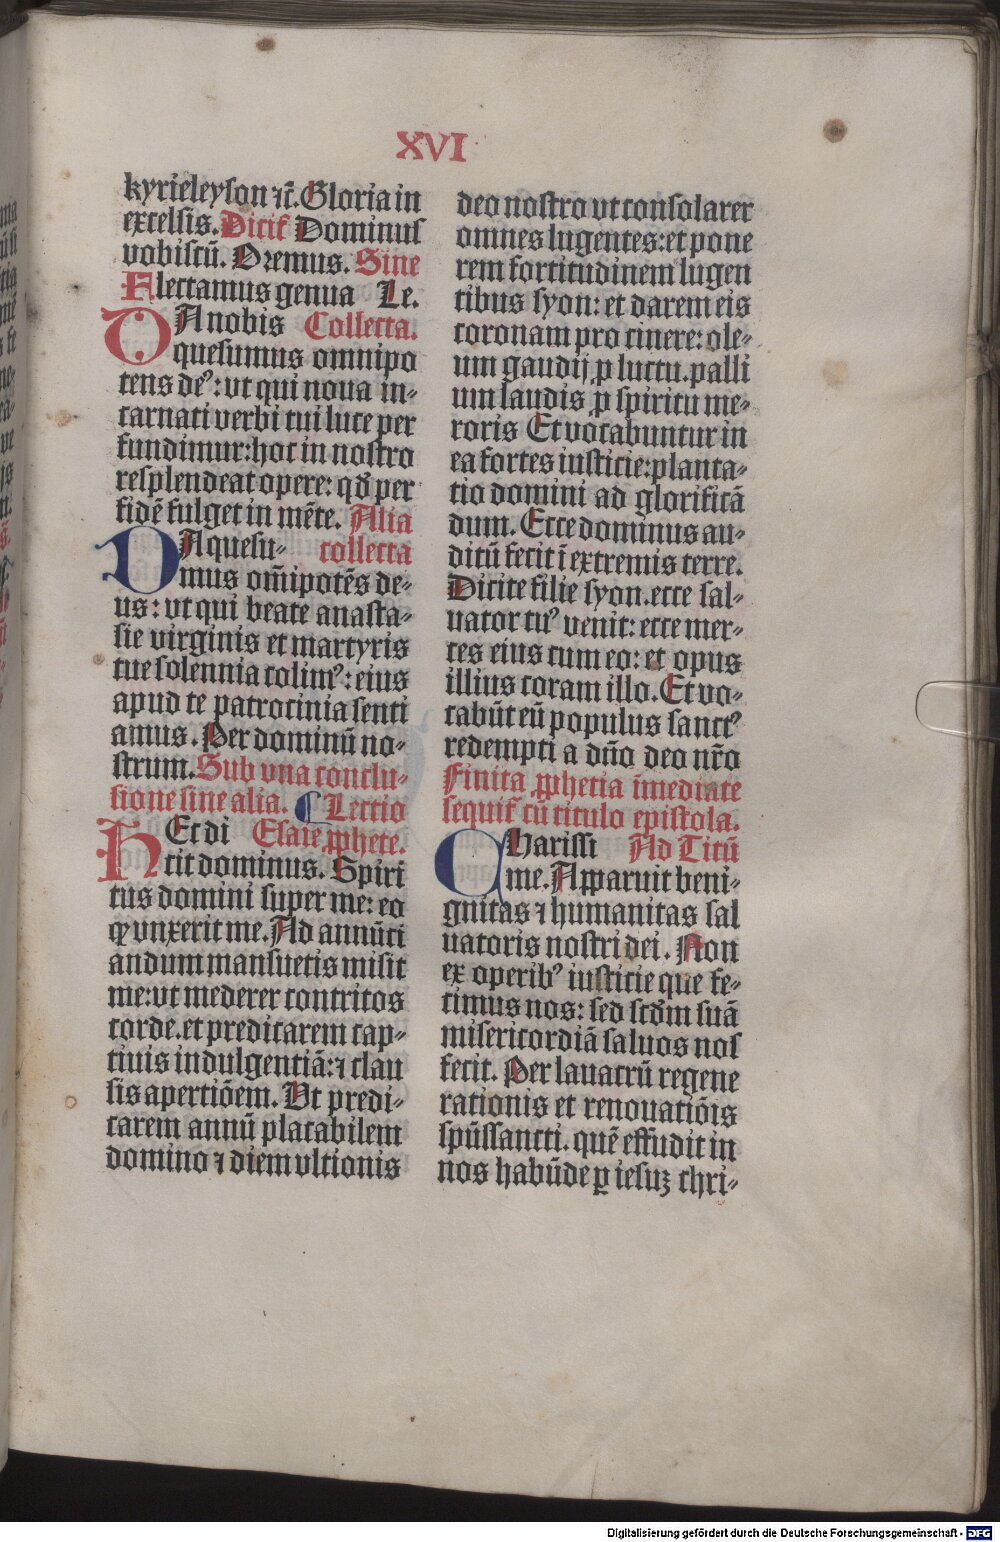 XVI
kyrieleyson ⁊c̃. Gloria in
excelsis. Dicit᷑ Dominus
vobiscū. Oremus. Sine
Flectamus genua Le.
DA nobis Collecta.
quesumus omnipo
tens deꝰ: vt qui noua in-
carnati verbi tui luce per
fundimur: hoc in nostro
resplendeat opere: qđ per
fidē fulget in mēte. Alia
DA quesu- collecta
mus om̄ipotēs de-
us: vt qui beate anasta-
sie virginis et martyris
tue solennia colimꝰ: eius
apud te patrocinia senti
amus. Per dominū no-
strum. Sub vna conclu-
sione sine alia. ¶ Lectio
HEc di Esaie ꝓphete.
cit dominus. Spiri
tus domini super me: eo
ꝙ vnxerit me. Ad annūci
andum mansuetis misit
me: vt mederer contritos
corde. et predicarem cap-
tiuis indulgentiā: ⁊ clau
sis apertiōem. Vt predi-
carem annū placabilem
domino ⁊ diem vltionis
deo nostro vt consolarer
omnes lugentes: et pone
rem fortitudinem lugen
tibus syon: et darem eis
coronam pro cinere: ole-
um gaudij ꝓ luctu. palli
um laudis ꝓ spiritu me-
roris Et vocabuntur in
ea fortes iusticie: planta-
tio domini ad glorificā
dum. Ecce dominus au-
ditū fecit ī extremis terre.
Dicite filie syon. ecce sal-
uator tuꝰ venit: ecce mer-
ces eius cum eo: et opus
illius coram illo. Et vo-
cabūt eū populus sanctꝰ
redempti a dño deo nr̄o
Finita ꝓphetia īmediate
sequit᷑ cū titulo epistola.
CHarissi Ad Titū
me. Apparuit beni-
gnitas ⁊ humanitas sal
uatoris nostri dei. Non
ex operibꝰ iusticie que fe-
cimus nos: sed scđm suā
misericordiā saluos nos
fecit. Per lauacrū regene
rationis et renouatiōis
spūssancti. quē effudit in
nos habūde ꝑ iesuꝫ chri-
Digitalisierung gefördert durch die Deutsche Forschungsgemeinschaft - DFG